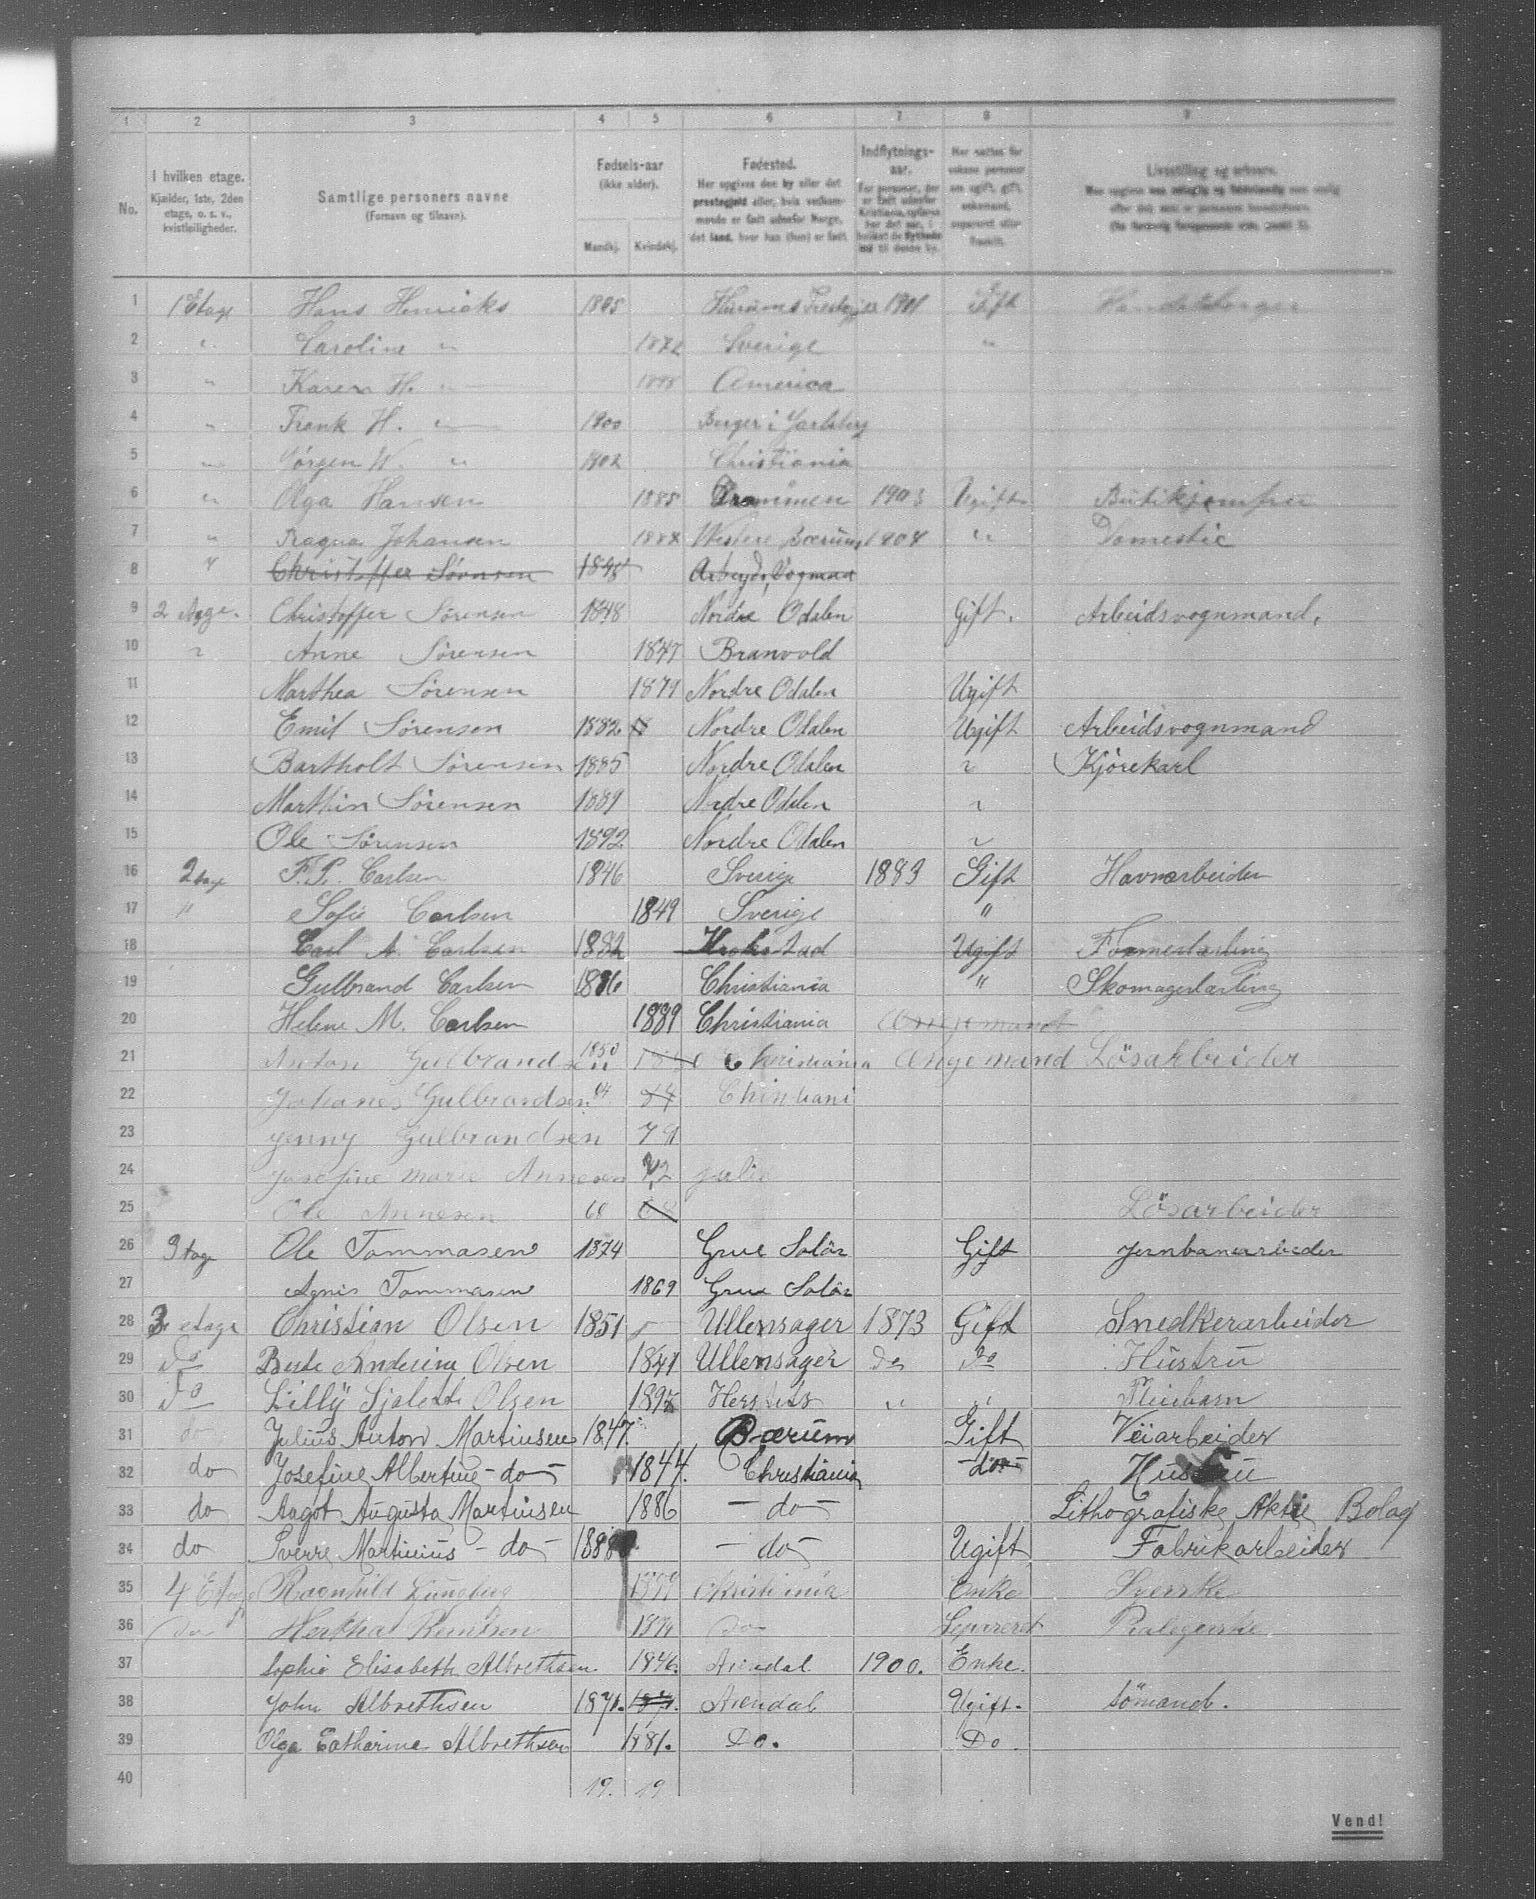 1 2 3 4 5 6 7 8 9
No. I hvilken etage. Kjælder, 1ste, 2den etage, o. s. v., kvistleiligheder. Samtlige personers navne (Fornavn og tilnavn). Fødsels-aar (ikke alder). Mandkj. Kvindekj. Fødested. Her opgives den by eller det prestegjeld eller, hvis vedkommende er født udenfor Norge, det land, hvor han (hun) er født. Indflytnings-aar. For personer, der er født udenfor Kristiania, opføres her det aar, i hvilket de flyttede ind til denne by. Livsstilling og erhverv.
1 1 Etage Hans Henricks 1865 Gift
2 " Caroline " 1872 Sverige "
3 " Karen H. " 1898 America
4 " Frank H. " 1900 Berger i Jarlsberg
5 " Jørgen W. " 1902 Christiania
6 " Olga Hansen 1885 Drammen 1903 Ugift Butikjomfru
7 " Ragna Johansen Westere Bærum 1904 " Domestic
8 " Christoffer Sørensen 1848 Arbejds Vogman
9 2 Christoffer Sørensen 1848 Nordre Odalen Gift. Arbeidsvognmand.
10 " Anne Sørensen 1847 Branvold
11 Marthea Sørensen 1879 Nordre Odalen Ugift
12 Emil Sørensen 1882 18 Nordre Odalen Ugift Arbeidsvognmand
13 Bartholt Sørensen 1885 Nordre Odalen " Kjørekarl
14 Marthin Sørensen 1889 Nordre Odalen "
15 Ole Sørensen 1892 Nordre Odalen "
16 2 tage F. P. Carlsen 1846 Sverige 1883 Gift Havnarbeider
17 " Sofie Carlsen 1849 Sverige "
18 Carl A. Carlsen 1882 Krokstad Ugift
19 Gulbrand Carlsen 1886 Christiania " Skomagerlærling
20 Helene M. Carlsen 1889 Christiania
21 Anton Gulbrandsen 1850 Christiania Ungemand Lösarbeider
22 Johanes Gulbrandsen 84 Christiani
23 Jenny Gulbrandsen 79
24 Josefine Marie Annesen 72
25 Ole Annesen 68 68 Lösarbeider
26 3 tage Ole Tommasen 1874 Grue Solör Gift Jernbanearbeder
27 Agnis Tommasen 1869 Grue Solör
28 3 etage Christian Olsen 1851 Ullensager 1873 Gift Snedkerarbeider
29 do Andrine Olsen Ullensager do do Hustru
30 do Lilly Olsen " " Pleiebarn
31 do Julius Anton Martinsen 1847. Bærum Gift Veiarbeider
32 do Josefine Albertine - do - 1844. Christiania - do - Hustru
33 do Aagot Augusta Martinsen 1886 - do - Lithografiske Aktie Bolag
34 do Sverre Martinius - do - 1888 - do - Ugift Fabrikarbeider
35 4 Etage Ragnhild Christiania Enke
36 do Hertha do Separeret
37 Sophie Elisabeth Albrethsen. 1846. Arendal 1900. Enke.
38 John Albrethsen 1871. 1871. Arendal Ugift. sömand.
39 Olga Catharina Albrethsen 1881. Do. Do
40 19. 19
Vend!